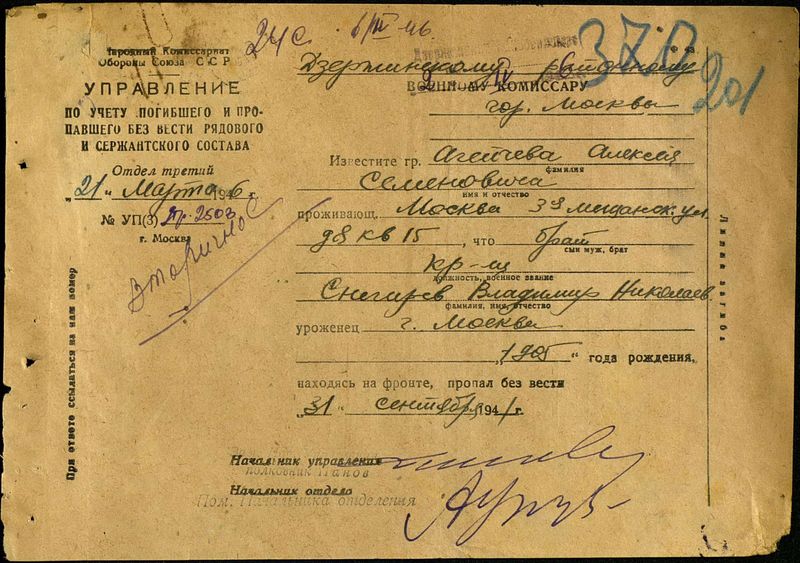 Народный Комиссариат
Обороны Союза ССР
УПРАВЛЕНИЕ
ПО УЧЕТУ ПОГИБШЕГО И ПРО-
ПАВШЕГО БЕЗ ВЕСТИ РЯДОВОГО
И СЕРЖАНТСКОГО СОСТАВА
Отдел третий
"21" Марта 1946 г.
№ УП(3) 2503
г. Москва
Вторично
При ответе ссылаться на наш номер
24с 6/III 46
37
201
Дзержинскому районному
ВОЕННОМУ КОМИССАРУ
гор. Москвы
Известите гр. Агейчева Алексея
фамилия
Семеновича
имя и отчество
проживающ. Москва 3я Мещанск. ул.
д 8 кв 15, что брат
сын муж, брат
кр-ец
должность, военное звание
Снегирев Владимир Николаев.
фамилия, имя, отчество
уроженец г. Москва
"1905" года рождения,
находясь на фронте, пропал без вести
"31" сентября 1941 г.
Начальник управления
полковник Панов
Начальник отдело
Пом. Начальника отделения
Линия сгиба